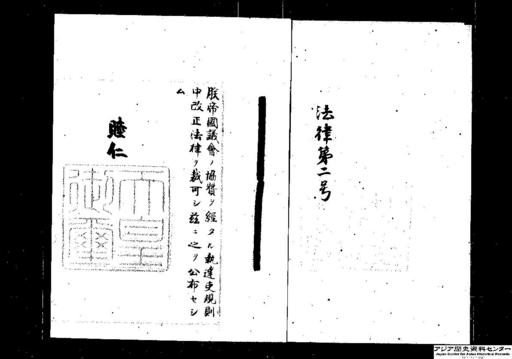 法律第二号
朕帝國議會ノ協賛ヲ經タル執達吏規則
中改正法律ヲ裁可シ茲ニ之ヲ公布セシ
ム
睦仁
天皇御璽
アジア歴史資料センター
Japan Center for Asian Historical Records